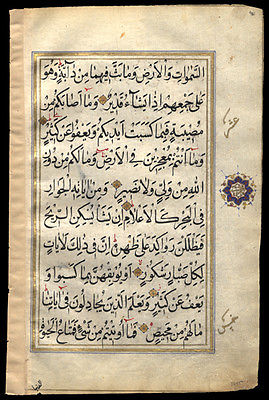 السَّمٰوَاتِ وَالْأَرْضِ وَمَا بَثَّ فِيهِمَا مِنْ دَابَّةٍ وَهُوَ
عَلَى جَمْعِهِمْ إِذَا يَشَاءُ قَدِيرٌ وَمَا أَصَابَكُمْ مِنْ
مُصِيبَةٍ فَبِمَا كَسَبَتْ أَيْدِيكُمْ وَيَعْفُو عَنْ كَثِيرٍ
وَمَا أَنْتُمْ بِمُعْجِزِينَ فِي الْأَرْضِ وَمَا لَكُمْ مِنْ دُونِ
اللَّهِ مِنْ وَلِيٍّ وَلَا نَصِيرٍ وَمِنْ آيَاتِهِ الْجَوَارِ
فِي الْبَحْرِ كَالْأَعْلَامِ إِنْ يَشَأْ يُسْكِنِ الرِّيحَ
فَيَظْلَلْنَ رَوَاكِدَ عَلَى ظَهْرِهِ إِنَّ فِي ذَلِكَ لَآيَاتٍ
لِكُلِّ صَبَّارٍ شَكُورٍ أَوْ يُوبِقْهُنَّ بِمَا كَسَبُوا وَ
يَعْفُ عَنْ كَثِيرٍ وَيَعْلَمَ الَّذِينَ يُجَادِلُونَ فِي آيَاتِنَا
مَا لَهُمْ مِنْ مَحِيصٍ فَمَا أُوتِيتُمْ مِنْ شَيْءٍ فَمَتَاعُ الْحَيٰوةِ